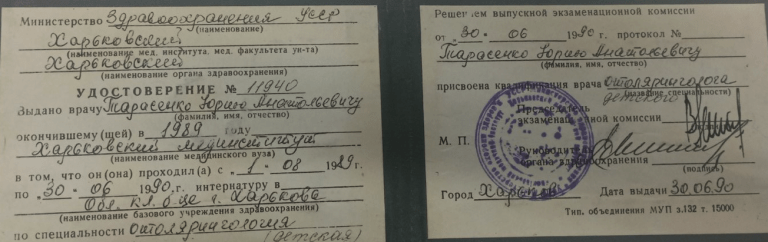 Министерство Здравоохранения УССР
(наименование)
Харьковский
(наименование мед. института, мед. факультета ун-та)
Харьковский
(наименование органа здравоохранения)
УДОСТОВЕРЕНИЕ № 11940
Выдано врачу Тарасенко Юрию Анатольевичу
(фамилия, имя, отчество)
окончившему (щей) в 1989 году
Харьковский мединститут
(наименование медицинского вуза)
в том, что он (она) проходил (а) с 1 · 08 1989 г.
по 30 · 06 1990 г. интернатуру в
Обл. кл. б-це г. Харькова
(наименование базового учреждения здравоохранения)
по специальности отолярингология
(детская)
Решением выпускной экзаменационной комиссии
от 30 · 06 1990 г. протокол №
Тарасенко Юрию Анатольевичу
(фамилия, имя, отчество)
присвоена квалификация врача отоляринголога
(название специальности)
детского
Председатель
экзаменационной комиссии
М. П.
Руководитель
органа здравоохранения
(подпись)
Город Харьков Дата выдачи 30.06.90
Тип. объединения МУП з.132 т. 15000